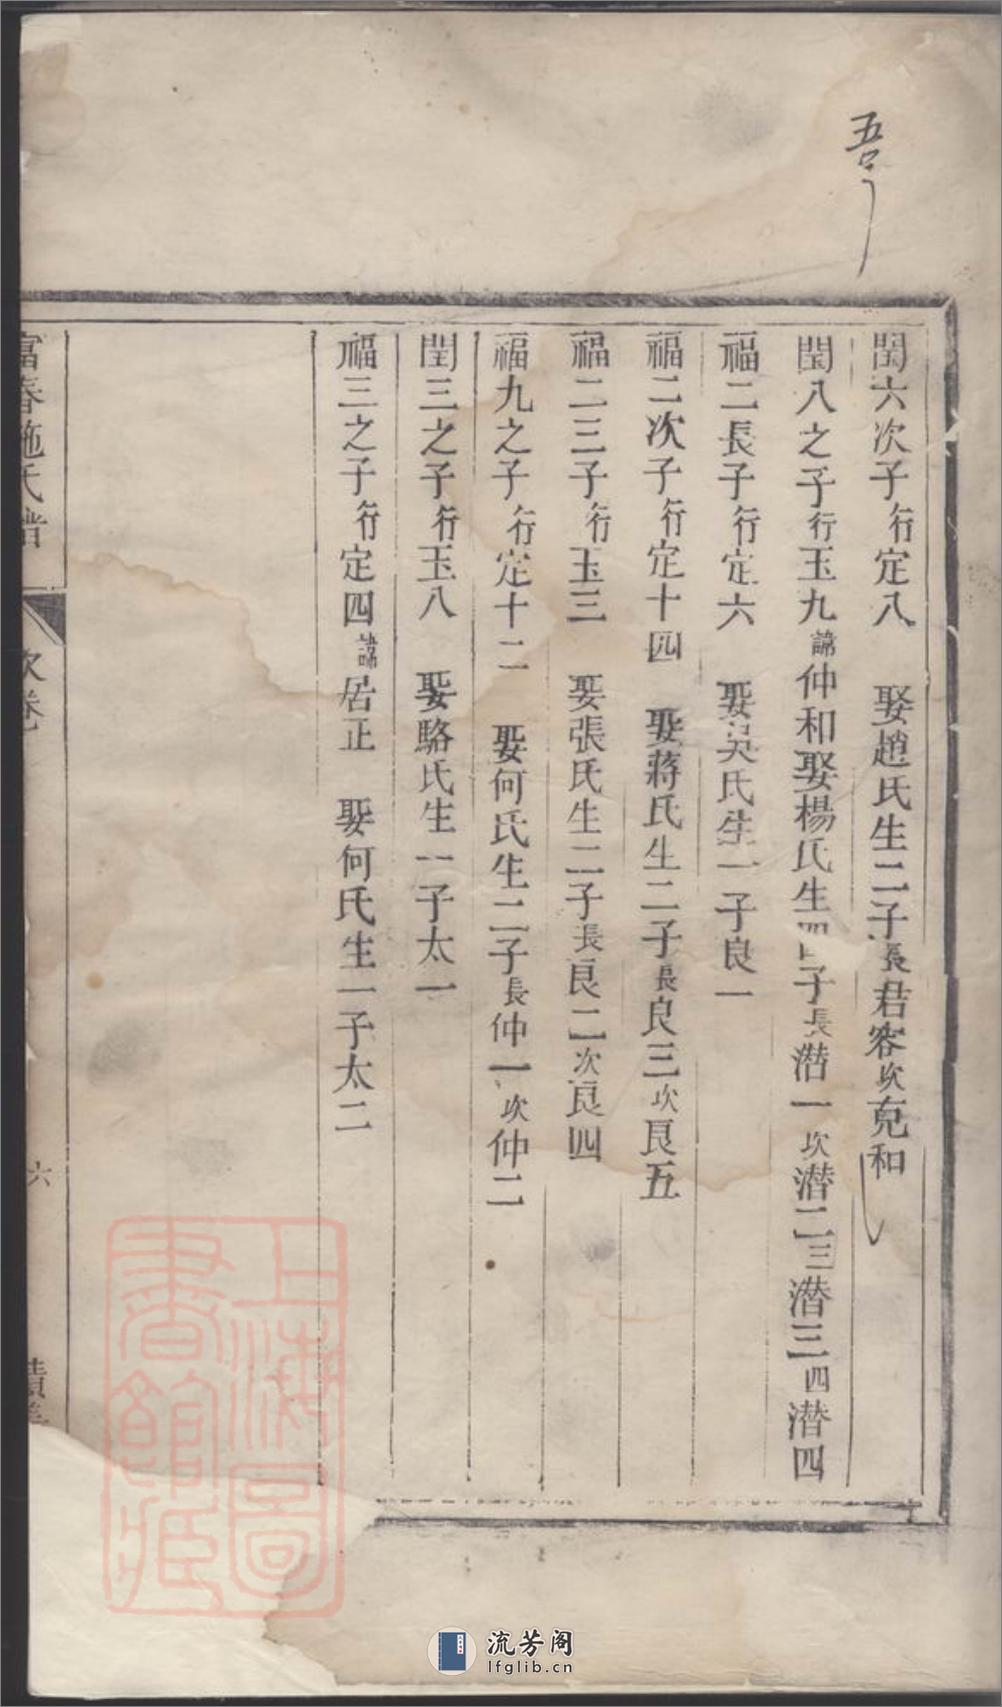 閏六次子行定八　娶趙氏生二子長君容次克和
閏八之子行玉九諱仲和娶楊氏生四子長潛一次潛二三潛三四潛四
福二長子行定六　娶吳氏生一子良一
福二次子行定十四　娶蔣氏生二子長良三次良五
福二三子行玉三　娶張氏生二子長良二次良四
福九之子行定十二　娶何氏生二子長仲一次仲二
閏三之子行玉八　娶駱氏生一子太一
福三之子行定四諱居正　娶何氏生一子太二
富春施氏譜　次卷　六
上海圖書館藏
流芳阁
lfglib.cn